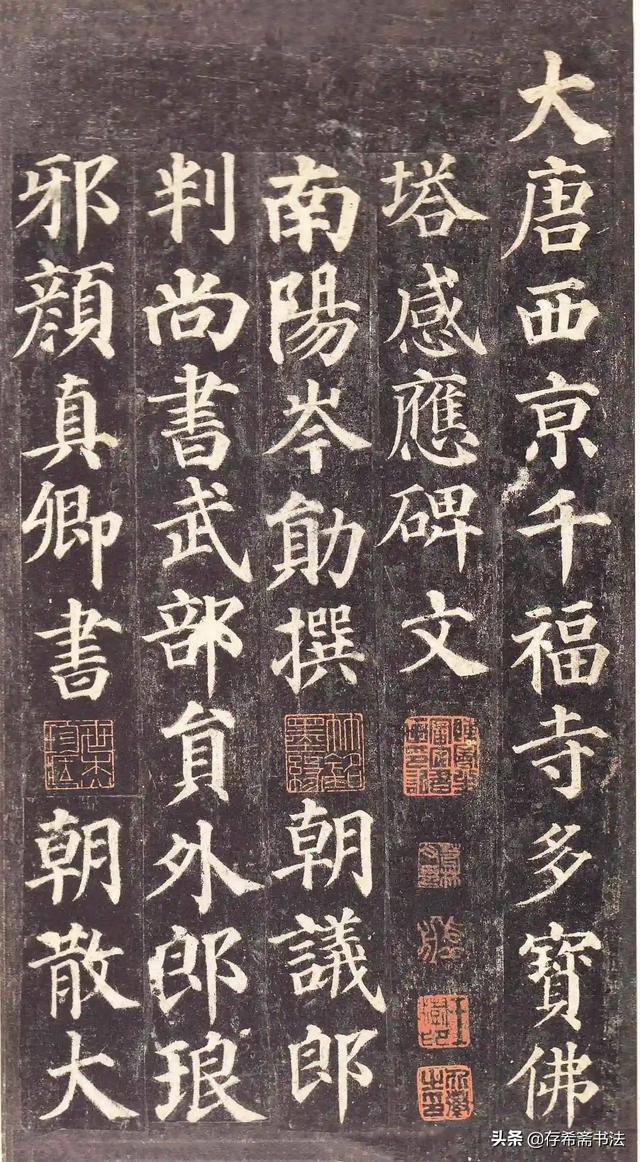 大唐西亰千福寺多寶佛
塔感應碑文
南陽岑勛撰 朝議郎
判尚書武部貟外郎琅
邪顏真卿書 朝散大
头条 @存希斋书法